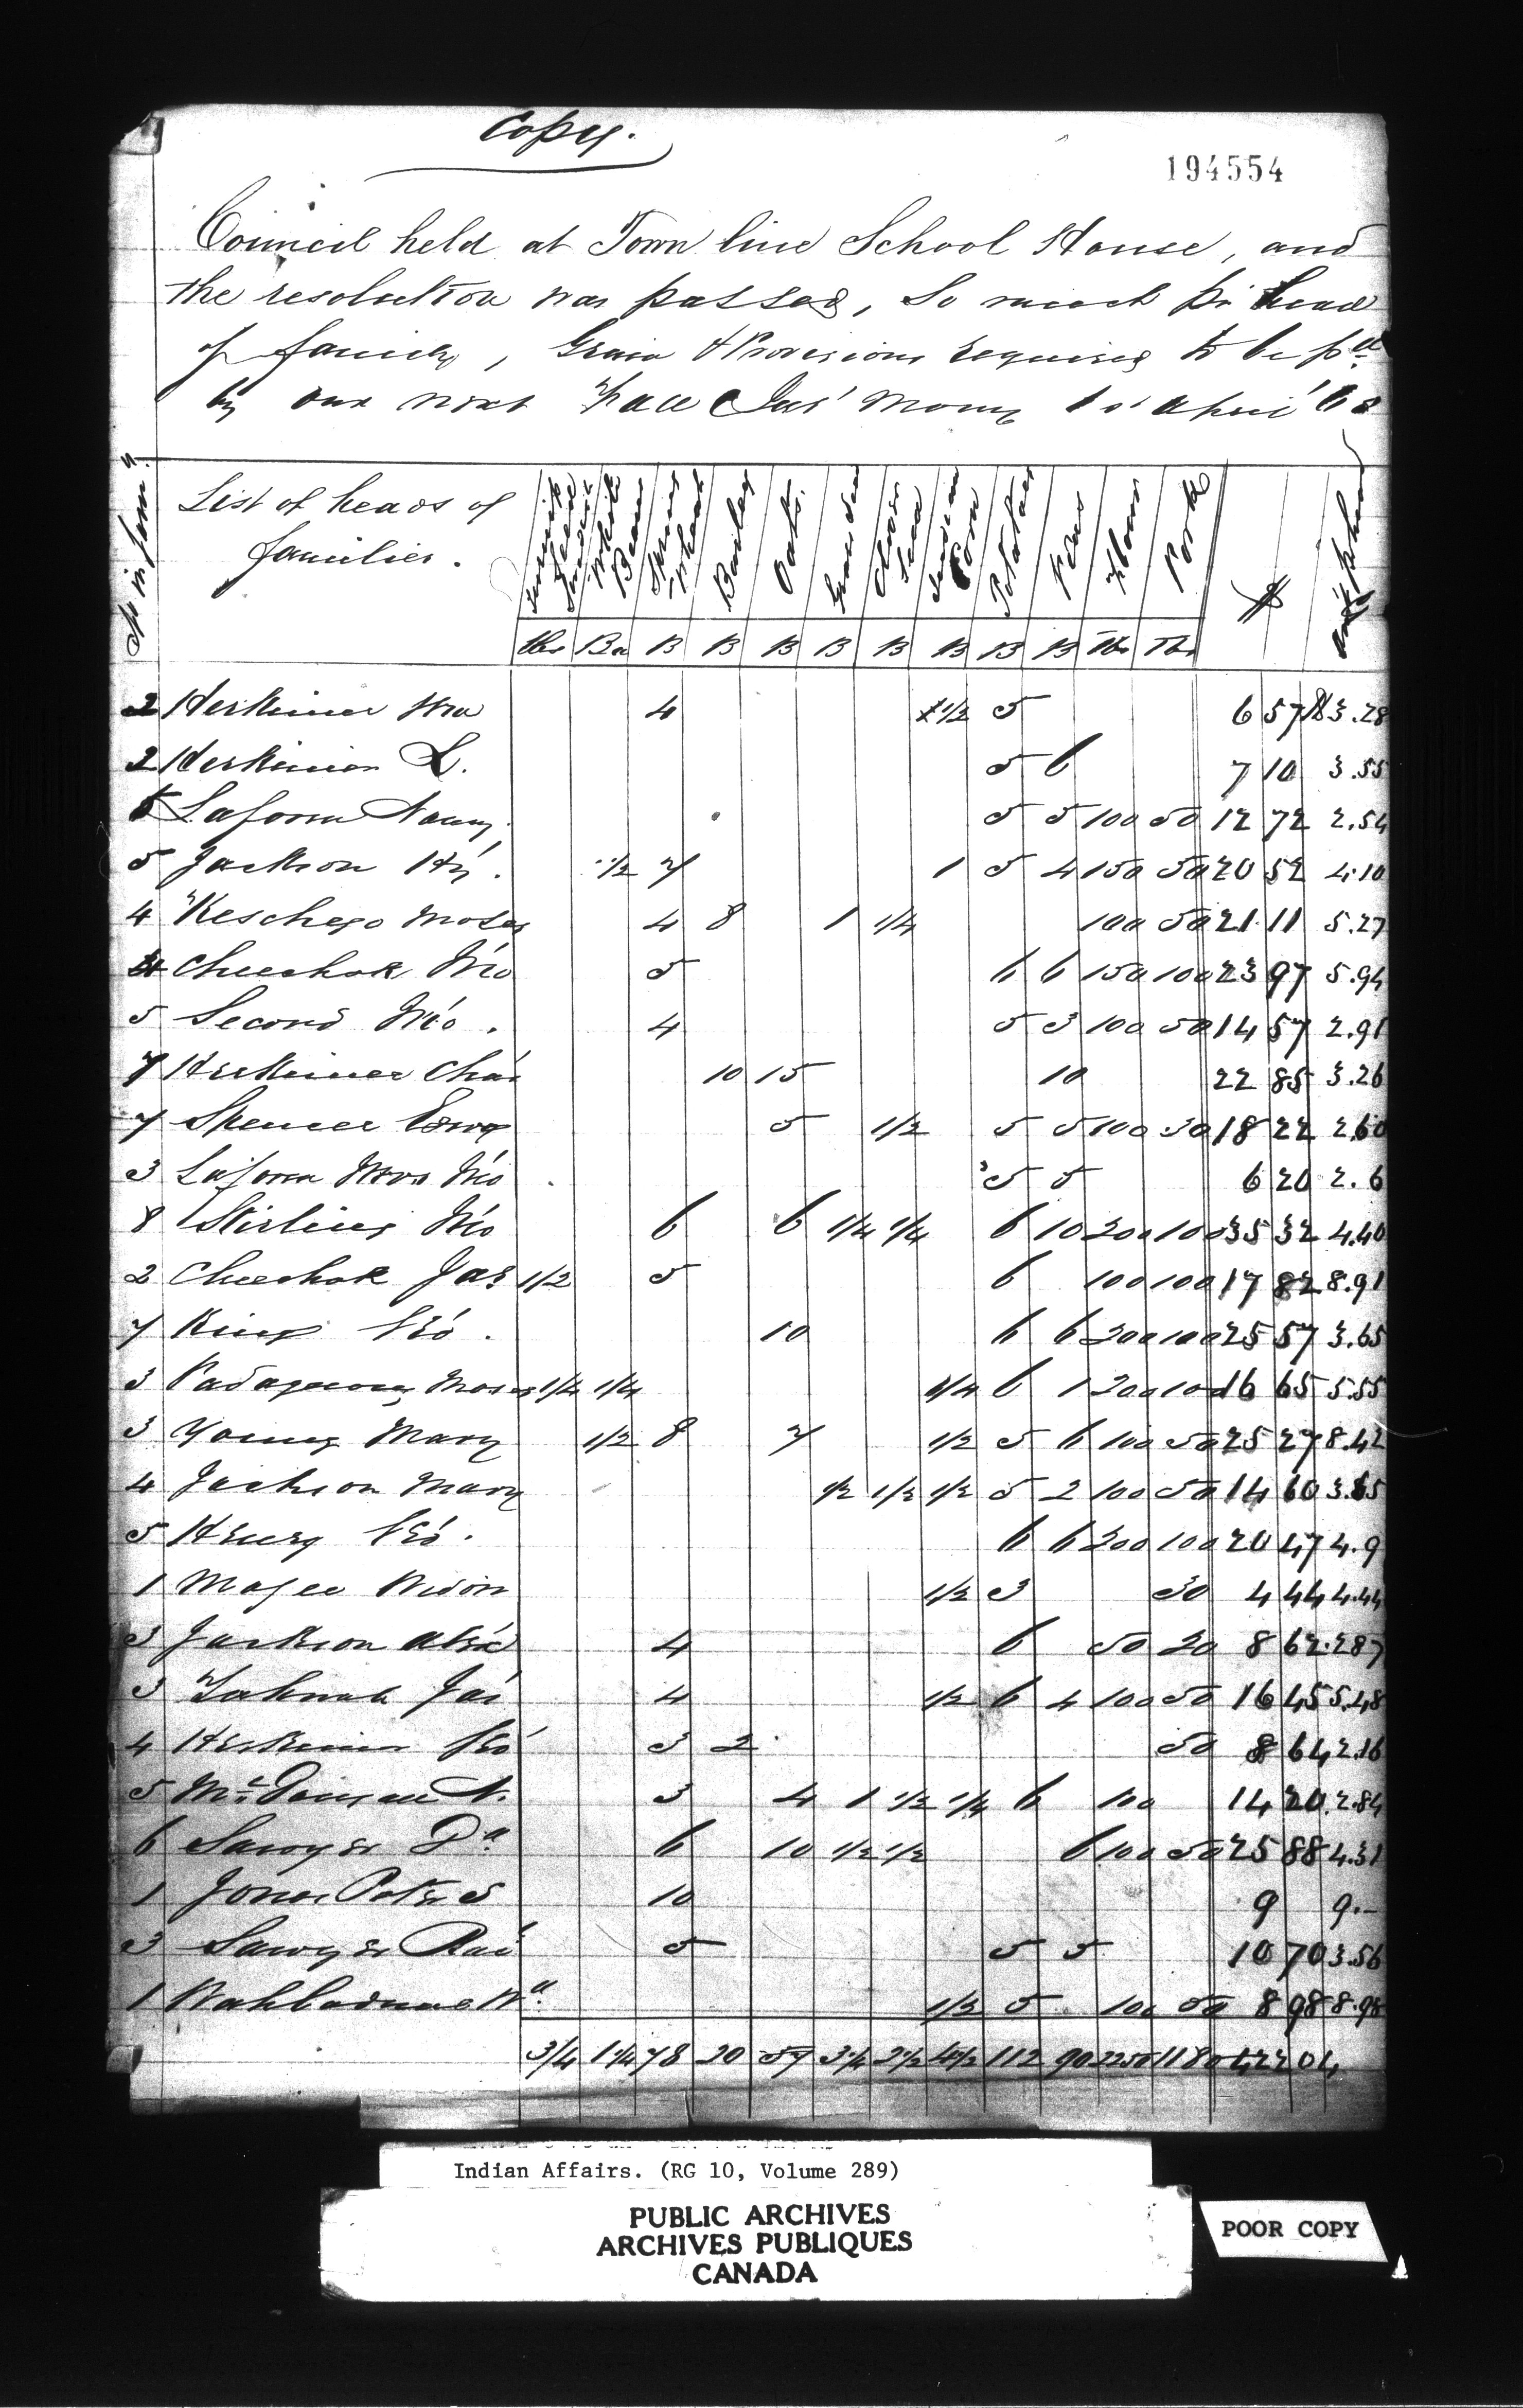 Copy.
194554
Council held at Town line School House, and
the resolution was passed, So much pr head
of family, Grain & Provisions required to be pd
by our next Fall Int Money 1st April 68
No in fam'y
List of heads of families.
White Beans
Spring Wheat
Barley
Oats.
Clover Seed
Indian Corn
Potatoes
Peas
Flour
Pork
$
lbs Bu B B B B B B B B lbs lbs
2 Herkimer Wm 4 1/2 5 6 57 $3.28
2 Herkimer L. 5 6 7 10 3.55
5 Laform Nancy 5 5 100 50 12 72 2.54
5 Jackson Hy. 1/2 7 1 5 4 150 50 20 52 4.10
4 Keschego Moses 4 8 1 1/4 100 50 21 11 5.27
4 Cheehok Jno 5 6 6 150 100 23 97 5.94
5 Second Jno. 4 5 3 100 50 14 57 2.91
7 Herkimer Chas 10 15 10 22 85 3.26
7 Spencer Edwd 5 1/2 5 5 100 50 18 22 2.60
3 Laform Mrs Jno 5 5 6 20 2.6
8 Stirling Jno 6 6 1/4 1/4 6 10 200 100 35 32 4.40
2 Cheehok Jas 1/2 5 6 100 100 17 82 8.91
7 King Geo. 10 6 6 200 100 25 57 3.65
3 Padaguong Moses 1/4 1/4 1/4 6 1 200 100 16 65 5.55
3 Young Mary 1/2 8 7 1/2 5 6 100 50 25 27 8.42
4 Jackson Mary 1/2 1/2 1/2 5 2 100 50 14 60 3.65
5 Henry Geo. 6 6 200 100 20 47 4.9
1 Magee Widow 1/2 3 30 4 44 4.44
3 Jackson Alex 4 6 50 20 8 62 2.87
3 Tahnah Jas 4 1/2 6 4 100 50 16 45 5.48
4 Herkimer Geo 3 2 50 8 64 2.16
5 McDougall N. 3 4 1 1/2 1/4 6 100 14 20 2.84
6 Sawyer Dd 6 10 1/2 1/2 6 100 50 25 88 4.31
1 Jones Peter S 10 9 9.–
3 Sawyer 5 5 5 10 70 3.56
1 Wahbadnne Wm 1/2 5 100 50 8 98 8.98
3/4 1 1/4 78 20 57 3 1/4 2 1/2 4 1/2 112 90 2250 1180 422 04
Indian Affairs. (RG 10, Volume 289)
PUBLIC ARCHIVES
ARCHIVES PUBLIQUES
CANADA
POOR COPY